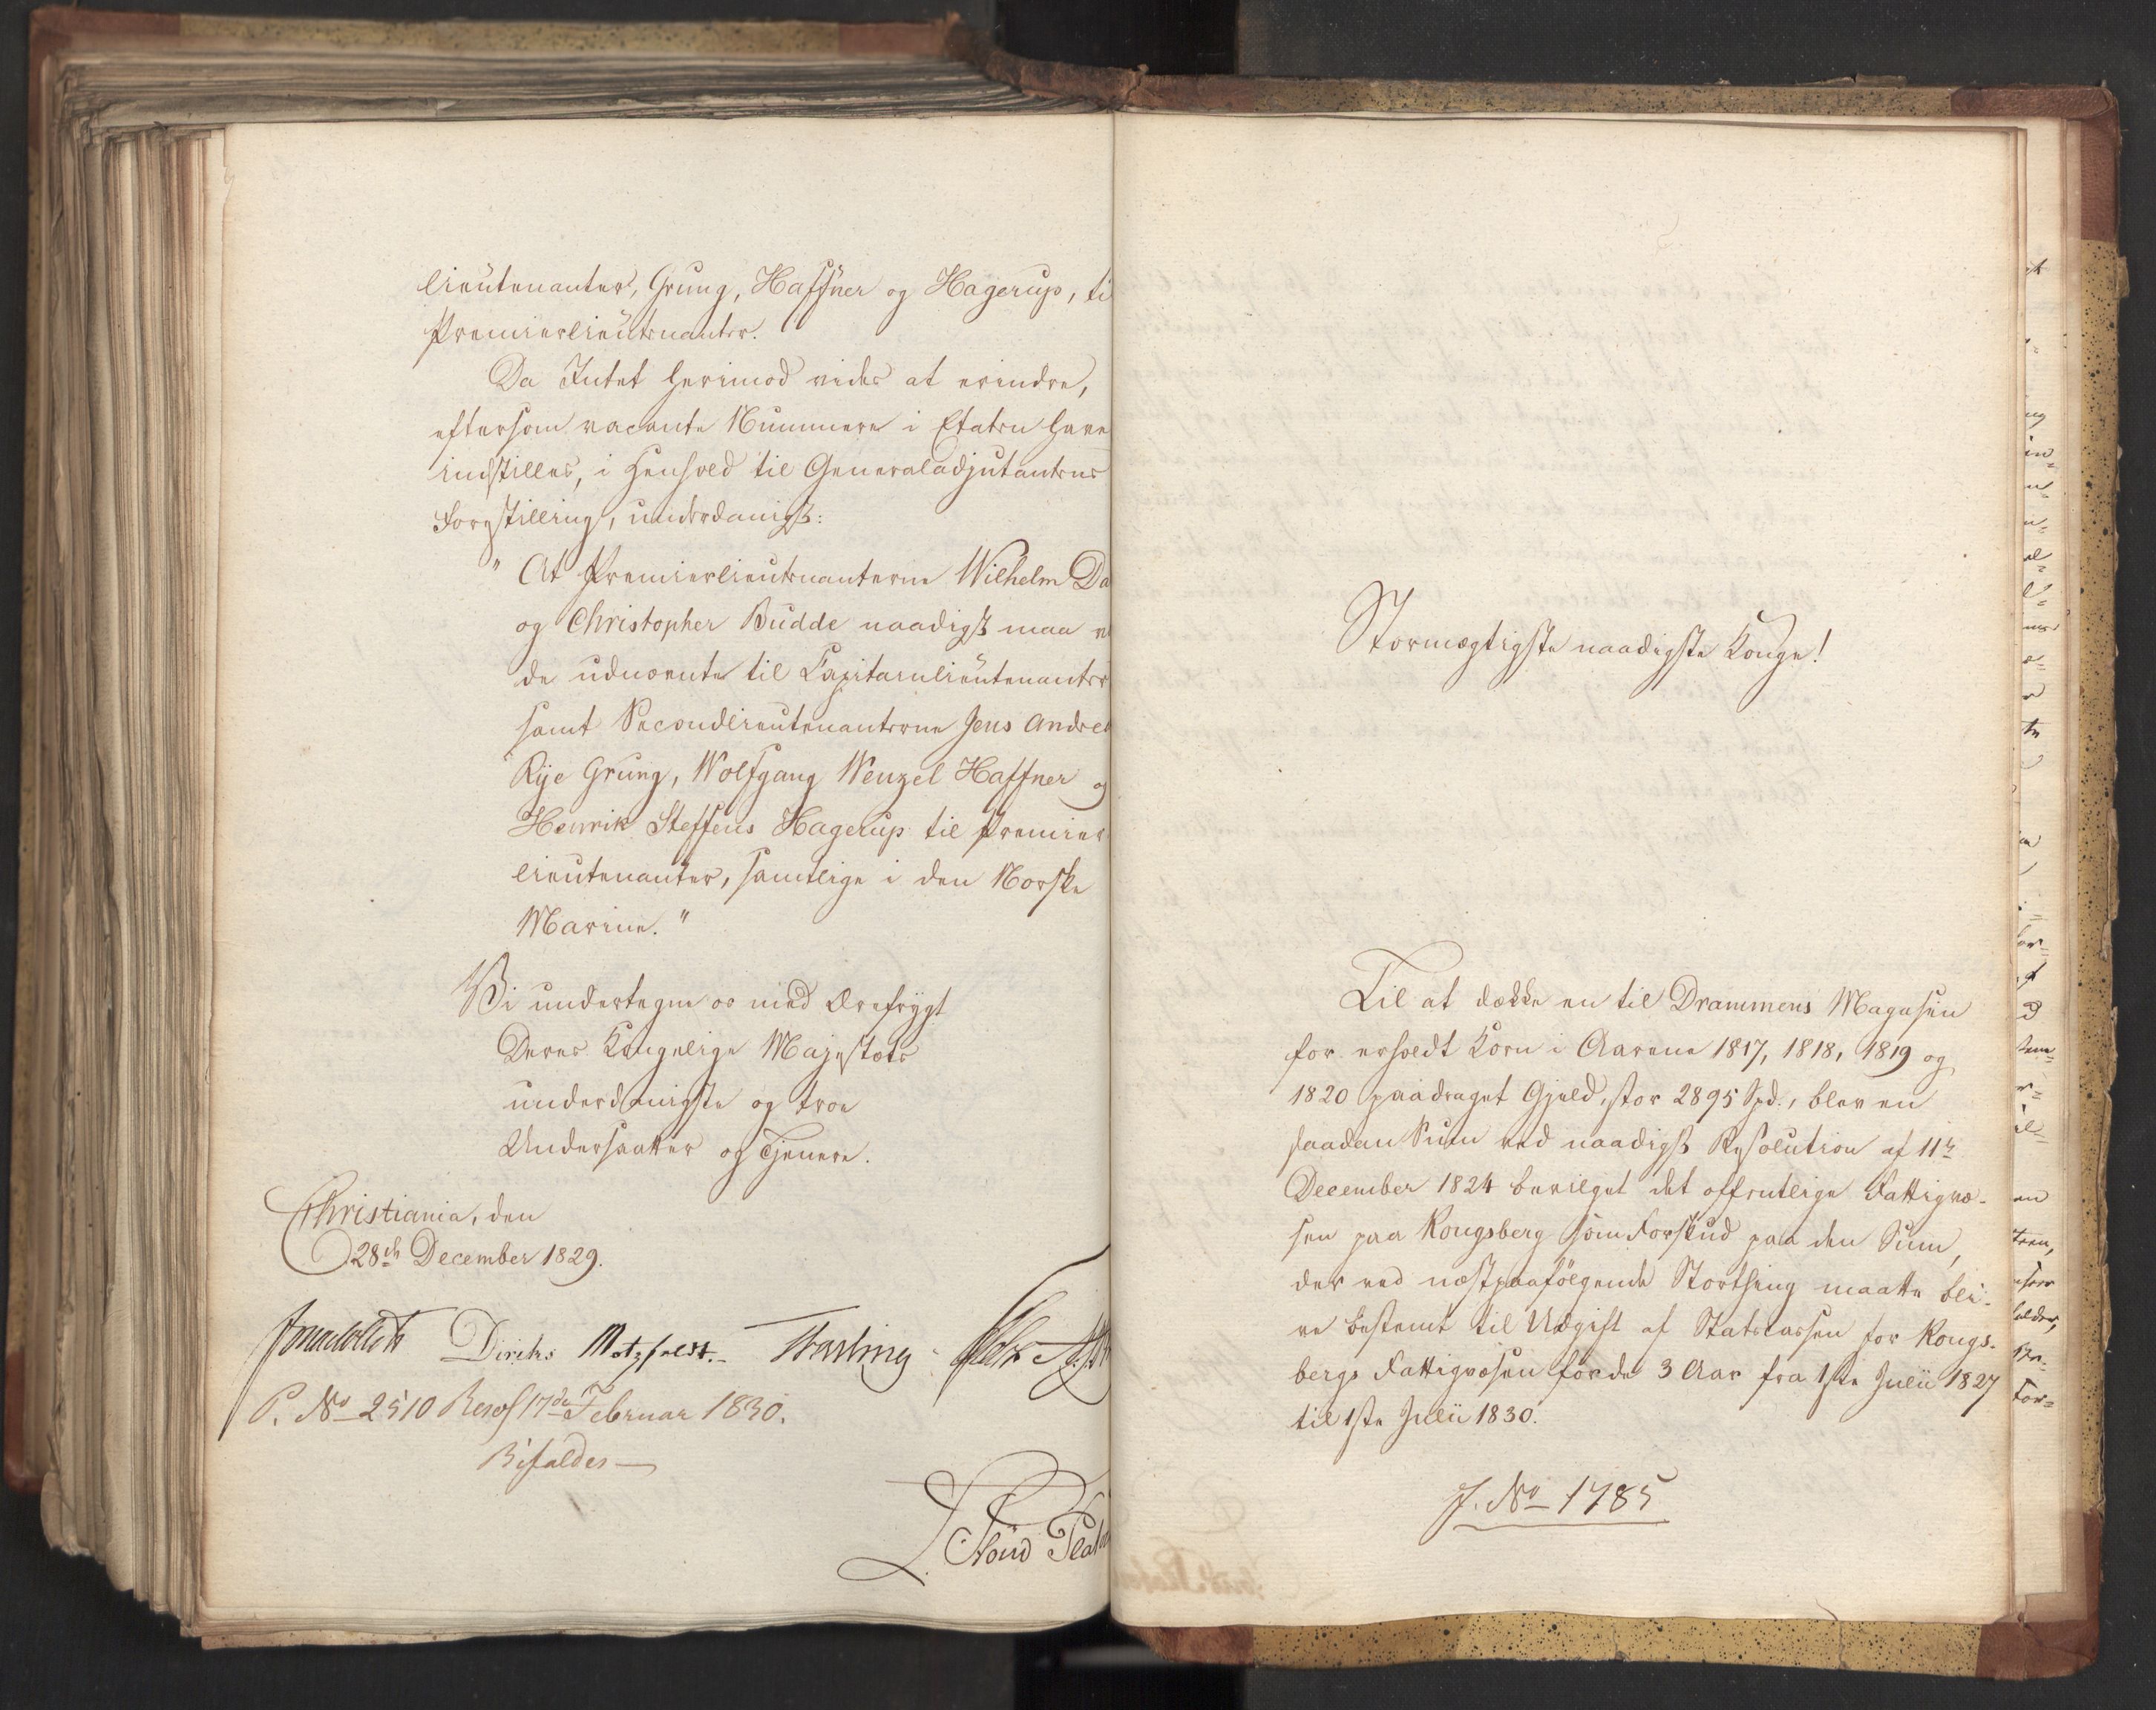 lieutenanter, Grung, Haffner og Hagerup, ti
Premierlieutenanter.
Da Intet herimod vides at erindre,
eftersom vacante Nummere i Etaten have
indstilles, i Henhold til Generaladjutantens
Forestilling, underdanigst:
" At Premierlieutenanterne Wilhelm Da
og Christopher Budde naadigst maa v
de udnævnte til Capitainlieutenanter
samt Secondlieutenanterne Jens Andrea
Rye Grung, Wolfgang Wenzel Haffner og
Henrik Steffens Hagerup til Premier
lieutenanter, samtlige i den Norske
Marine."
Vi undertegne os med Ærefrygt
Deres Kongelige Majestæts
underdanigste og troe
Undersaatter og Tjenere.
Christiania, den
28de December 1829.
Diriks Motzfeldt.
P. No 2510 Resol 17de Februar 1830.
Bifaldes
Stormægtigste naadigste Konge!
Til at dække en til Drammens Magasin
for erholdt Korn i Aarene 1817, 1818, 1819 og
1820 paadraget Gjeld, stor 2895 Spd., blev en
saadan Sum ved naadigst Resolution af 11te
December 1824 bevilget det offentlige Fattigvæ-
sen paa Kongsberg som Forskud paa den Sum,
der ved næstpaafølgende Storthing maatte bli-
ve bestemt til Udgift af Statscassen for Kongs-
bergs Fattigvæsen for de 3 Aar fra 1ste Julii 1827
til 1ste Julii 1830.
J. No 1785